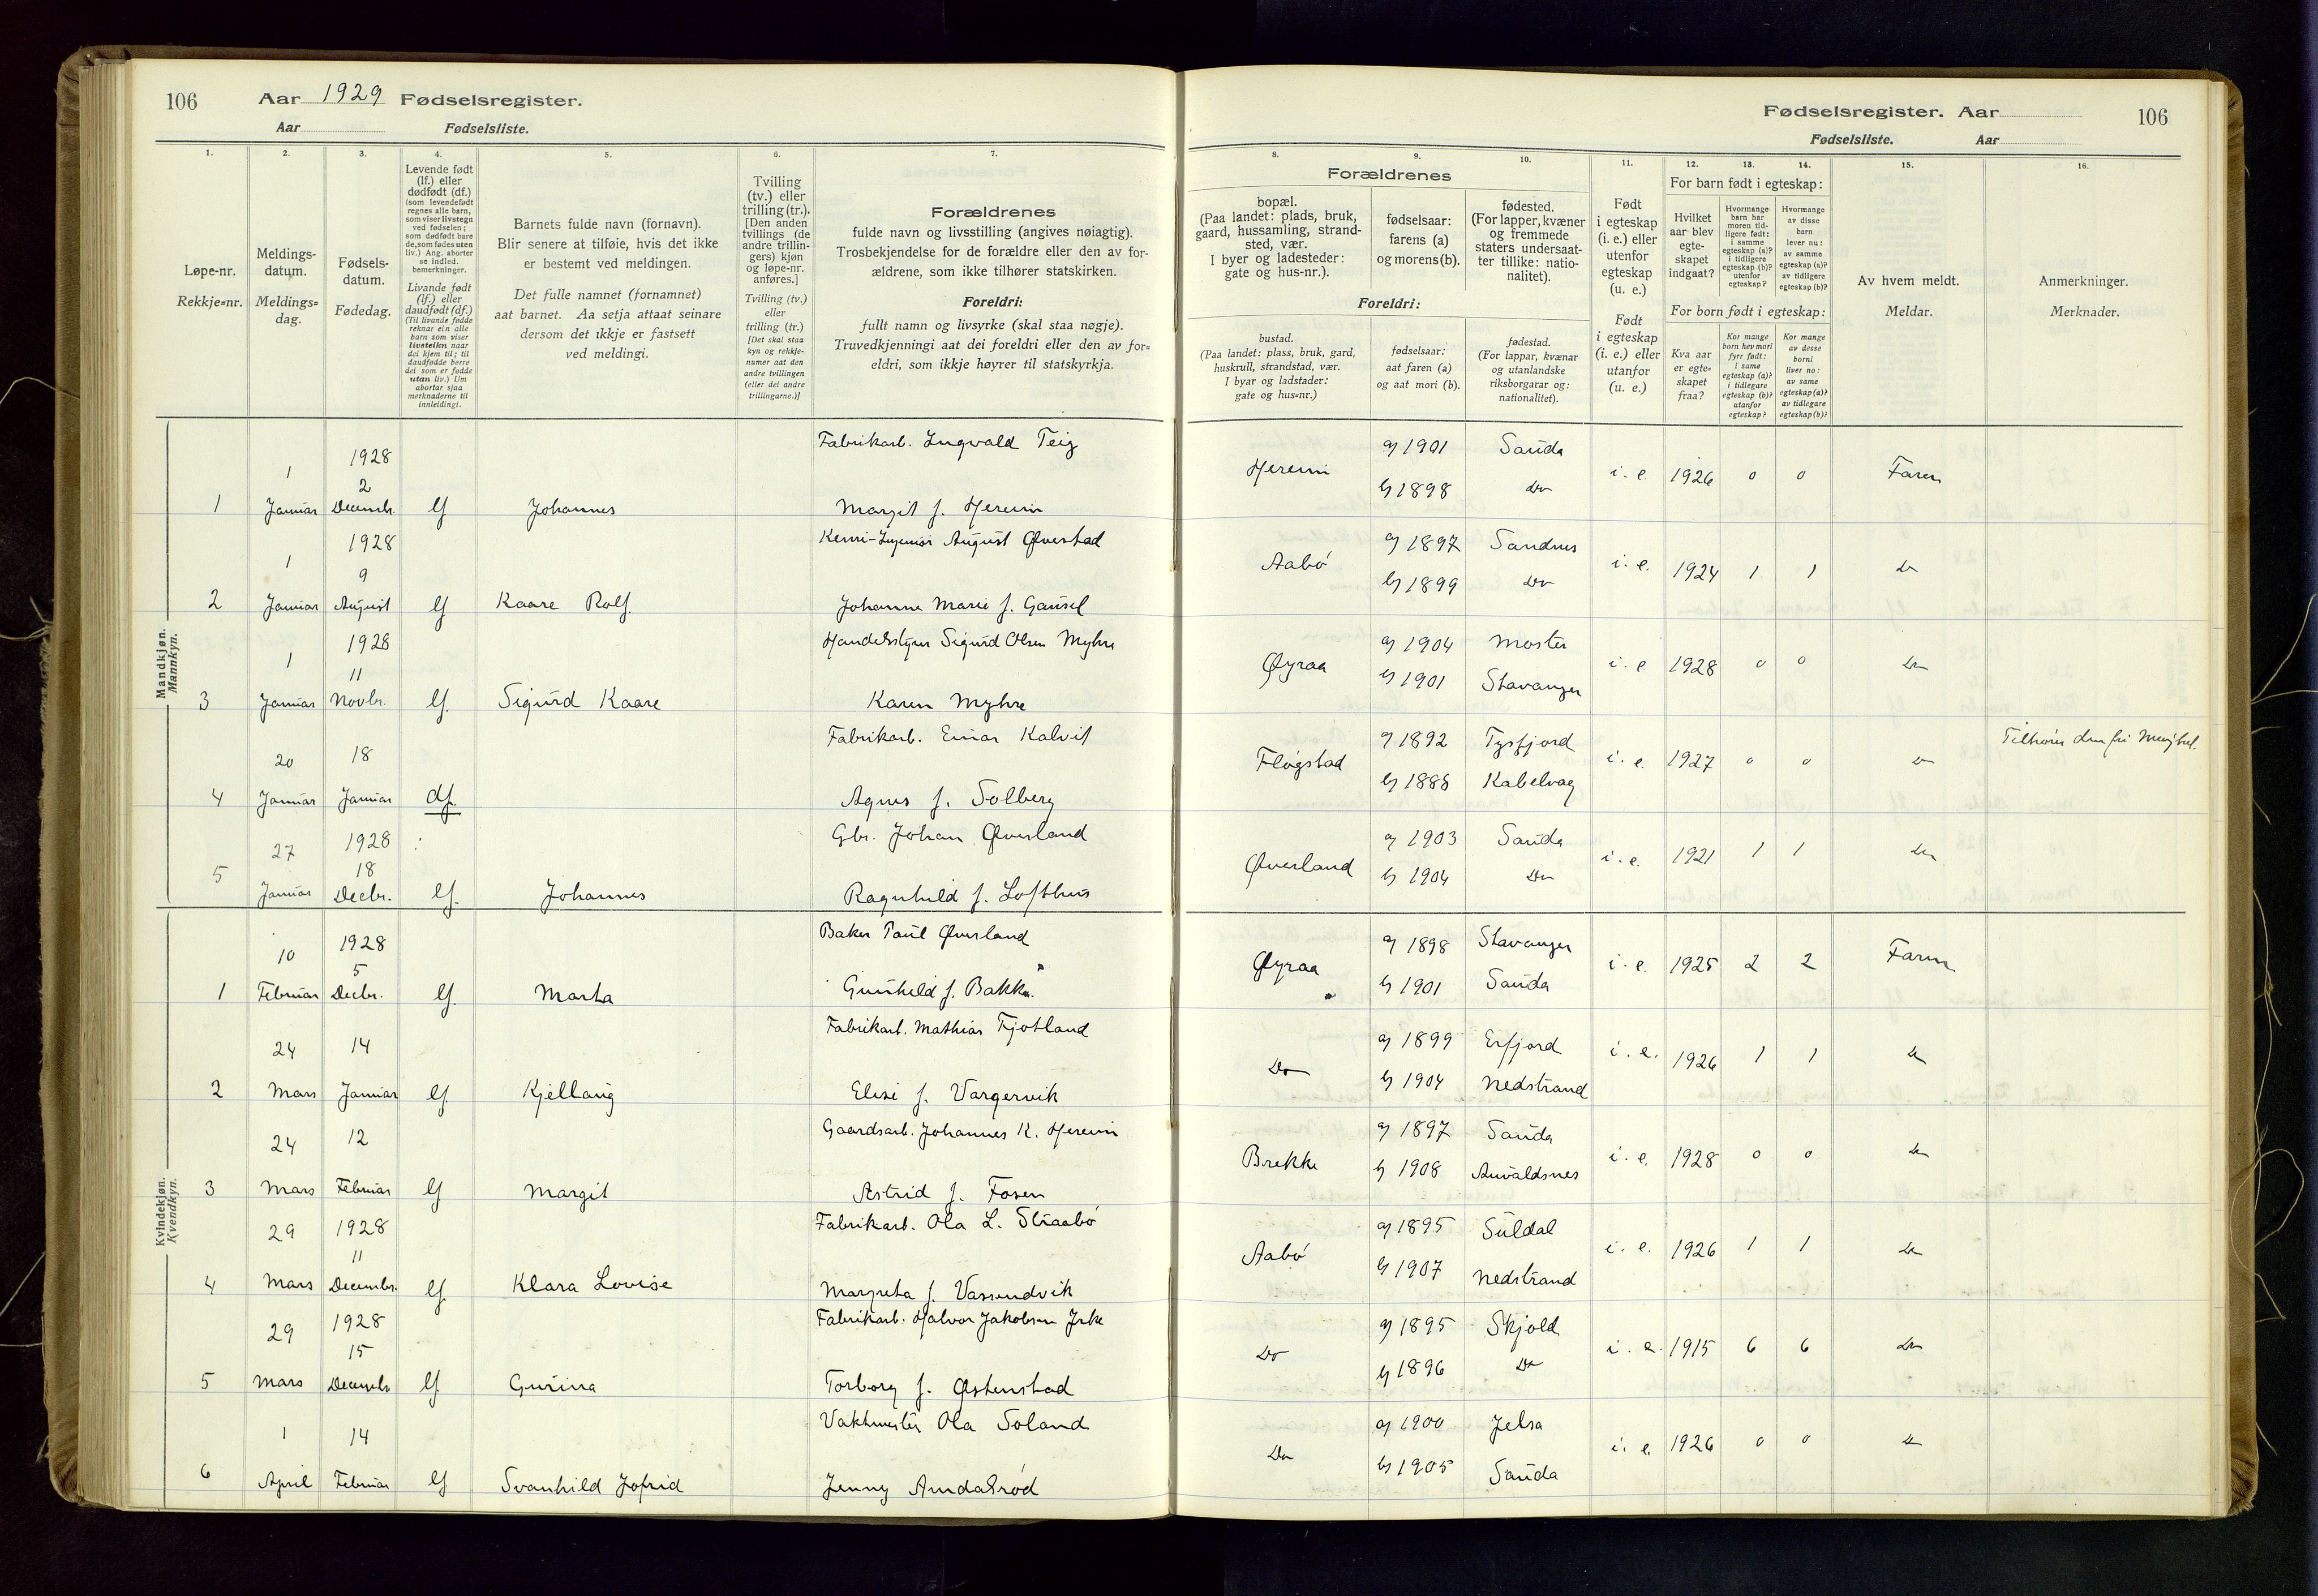 106 Aar 1929 Fødselsregister.
Aar Fødselsliste.
Fødselsregister. Aar 106
Fødselsliste. Aar
1. 2. 3. 4. 5. 6. 7.
8. 9. 10. 11. 12. 13. 14. 15. 16.
Løpe-nr.
Rekkje=nr.
Meldings-
datum.
Meldings=
dag.
Fødsels-
datum.
Fødedag.
Levende født
(lf.) eller
dødfødt (df.)
(som levendefødt
regnes alle barn,
som viser livstegn
ved fødselen;
som dødfødt bare
de, som fødes uten
liv.) Ang. aborter
se indled.
bemerkninger.
Livande født
(lf.) eller
daudfødt (df.)
(Til livande fødde
reknar ein alle
barn som viser
livsteikn naar
dei kjem til; til
daudfødde berre
dei som er fødde
utan liv.) Um
abortar sjaa
merknaderne til
innleidingi.
Barnets fulde navn (fornavn).
Blir senere at tilføie, hvis det ikke
er bestemt ved meldingen.
Det fulle namnet (fornamnet)
aat barnet. Aa setja attaat seinare
dersom det ikkje er fastsett
ved meldingi.
Tvilling
(tv.) eller
trilling (tr.).
[Den anden
tvillings (de
andre trillin-
gers) kjøn
og løpe-nr.
anføres.]
Tvilling (tv.)
eller
trilling (tr.)
[Det skal staa
kyn og rekkje-
numer aat den
andre tvillingen
(eller dei andre
trillingarne.)]
Forældrenes
fulde navn og livsstilling (angives nøiagtig).
Trosbekjendelse for de forældre eller den av for-
ældrene, som ikke tilhører statskirken.
Foreldri:
fullt namn og livsyrke (skal staa nøgje).
Truvedkjenningi aat dei foreldri eller den av for=
eldri, som ikkje høyrer til statskyrkja.
Forældrenes
bopæl.
(Paa landet: plads, bruk,
gaard, hussamling, strand-
sted, vær.
I byer og ladesteder:
gate og hus-nr.).
fødselsaar:
farens (a)
og morens (b).
fødested.
(For lapper, kvæner
og fremmede
staters undersaat-
ter tillike: natio-
nalitet).
Foreldri:
bustad.
(Paa landet: plass, bruk, gard,
huskrull, strandstad, vær.
I byar og ladstader:
gate og hus=nr.)
fødselsaar:
aat faren (a)
og aat mori (b).
fødestad.
(For lappar, kvænar
og utanlandske
riksborgarar og:
nationalitet).
Født
i egteskap
(i. e.) eller
utenfor
egteskap
(u. e.)
Født
i egteskap
(i. e.) eller
utanfor
(u. e.)
For barn født i egteskap:
Hvilket
aar blev
egte-
skapet
indgaat?
Hvormange
barn har
moren tid-
ligere født:
i samme
egteskap (a)?
i tidligere
egteskap (b)?
utenfor
egteskap?
Hvormange
av disse
barn
lever nu:
av samme
egteskap (a)?
av tidligere
egteskap (b)?
For born født i egteskap:
Kva aar
er egte=
skapet
fraa?
Kor mange
born hev mori
fyrr født:
i same
egteskap (a)?
i tidlegare
egteskap (b)?
utanfor
egteskap?
Kor mange
av desse
borni
liver no:
av same
egteskap (a)?
av tidlegare
egteskap (b)?
Av hvem meldt.
Meldar.
Anmerkninger.
Merknader.
Mandkjøn.
Mannkyn.
1 1 Januar 1928 2 Decembr. lf Johannes Fabrikarb. Ingvald Teig
Margit f. Hereim
Hereim a) 1901 Sauda i. e. 1926 0 0 Faren
b) 1898 Do
2 1 Januar 1928 9 August lf Kaare Rolf. Kemi-Ingeniør August Øvestad
Johanne Marie f. Gausel
Aabø a) 1897 Sandnes i. e. 1924 1 1 Do
b) 1899 Do
3 1 Januar 1928 11 Novbr. lf. Sigurd Kaare Handelsstyrer Sigurd Olsen Myhre
Karen Myhre
Øyraa a) 1904 Moster i. e. 1928 0 0 Do
b) 1901 Stavanger
4 20 Januar 18 Januar df. Fabrikarb. Einar Kalvik
Agnes f. Solberg
Fløgstad a) 1892 Tysfjord i. e. 1927 0 0 Do Tilhører den fri
b) 1888 Kabelvag
5 27 Januar 1928 18 Decbr. lf. Johannes Gbr. Johan Øverland
Ragnhild f. Lofthus
Øverland a) 1903 Sauda i. e. 1921 1 1 Do
b) 1904 Do
Kvindekjøn.
Kvendkyn.
1 10 Februar 1928 5 Decbr. lf. Marta Baker Paul Øverland
Gunhild f. Bakka.
Øyraa a) 1898 Stavanger i. e. 1925 2 2 Faren
b) 1901 Sauda
2 24 Mars 14 Januar lf. Kjellaug Fabrikarb. Mathias Fjotland
Elise f. Vargervik
Do a) 1899 Erfjord i. e. 1926 1 1 Do
b) 1904 Nedstrand
3 24 Mars 12 Februar lf Margit Gaardsarb. Johannes K. Hereim
Astrid f. Fosen
Brekke a) 1897 Sauda i. e. 1928 0 0 Do
b) 1908 Avaldsnes
4 29 Mars 1928 11 Decembr. lf. Klara Lovise Fabrikarb. Ola L. Straabø
Margreta f. Vassendvik
Aabø a) 1895 Suldal i. e. 1926 1 1 Do
b) 1907 Nedstrand
5 29 Mars 1928 15 Decembr lf Gurina Fabrikarb. Halvor Jakobsen
Torborg f. Østenstad
Do a) 1895 Skjold i. e. 1915 6 6 Do
b) 1896 Do
6 1 April 14 Februar lf Svanhild Jofrid Vaktmester Ola Soland
Jenny Amdalsrød
Do a) 1900 Jelsa i. e. 1926 0 0 Do
b) 1905 Sauda